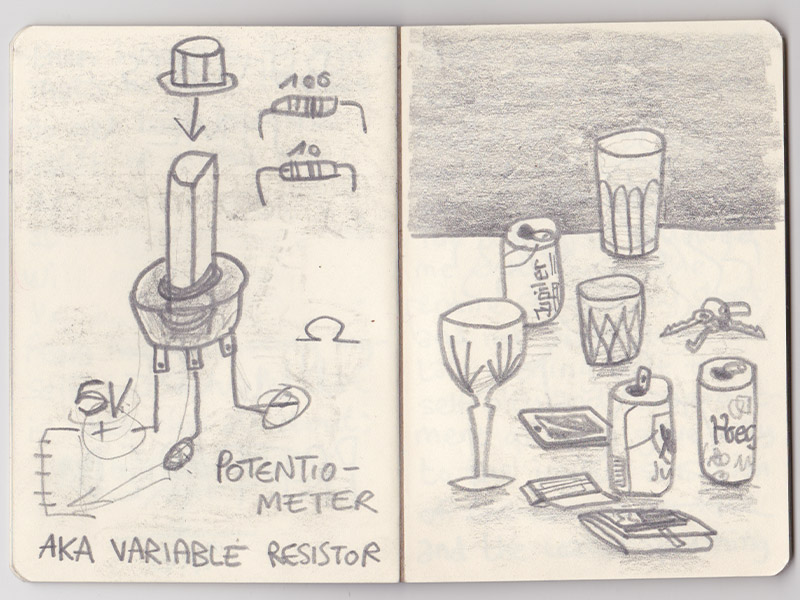 100
10
Ω
5V
+
POTENTIO-
METER
AKA VARIABLE RESISTOR
Jupiler
Hoeg
Ju